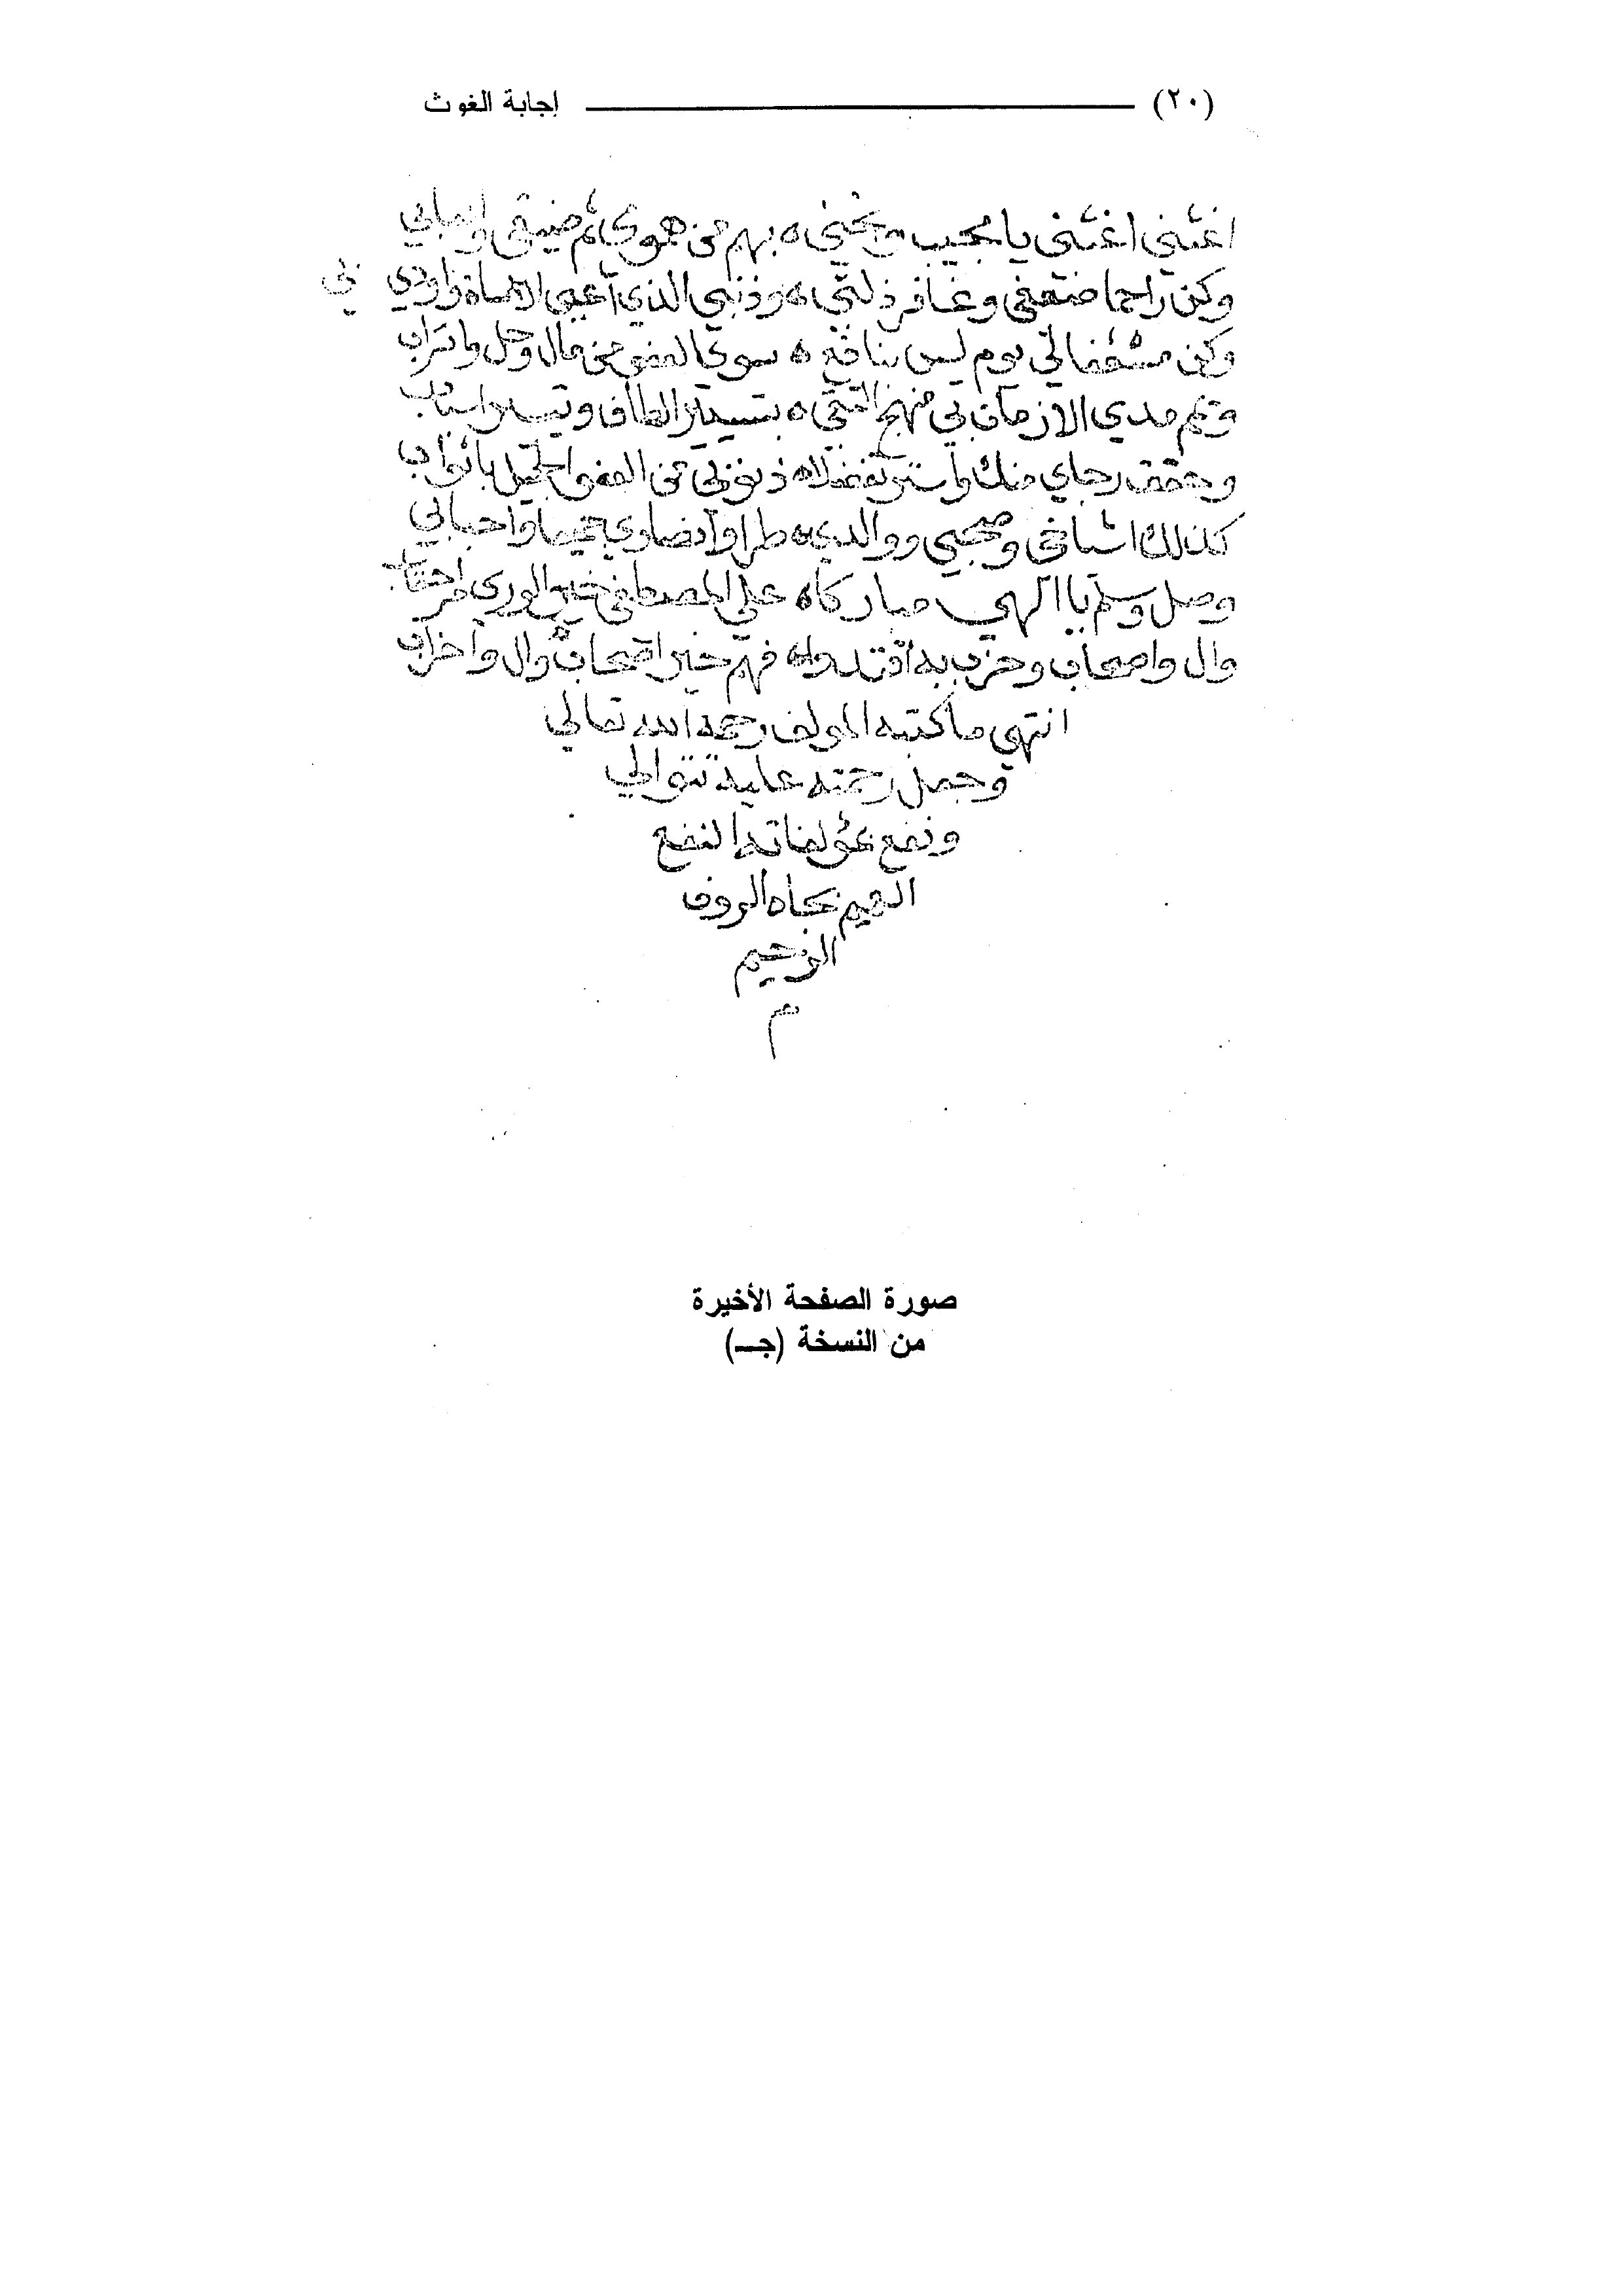 (٢٠) إجابة الغوث
اغثني اغثني يا مجيب ونجني ه بهم من هموي ثم ضيقي
وكن راحما ضعفي وغافر زلتي ه وذنبي الذي أعيى الاساة واودي بي
وكن مشفقا لي يوم ليس بنافع ه سوى العفو من مال وخل واتراب
وقم مدي الازمان بي منهج التقى ه بتسيير الطاف وتيسير اسباب
وحقق رجاي منك واستر تفضلا ه ذنوبي من العفو الجميل باثواب
كذلك اشياخي وصحبي ووالدي ه طرا وانصاري جميعا واحبابي
وصل وسلم يا الهي مباركا ه علي المصطفى خير الوري
وال واصحاب وحزب به اقتدوا ه فهم خير اصحاب وال واحزاب
انتهي ما كتبه المولف رحمه الله تعالي
وجعل رحمته عليه تتوالي
ونفع بمؤلفاته النفع
العميم بجاه الروف
الرحيم
م
صورة الصفحة الأخيرة
من النسخة (جـ)